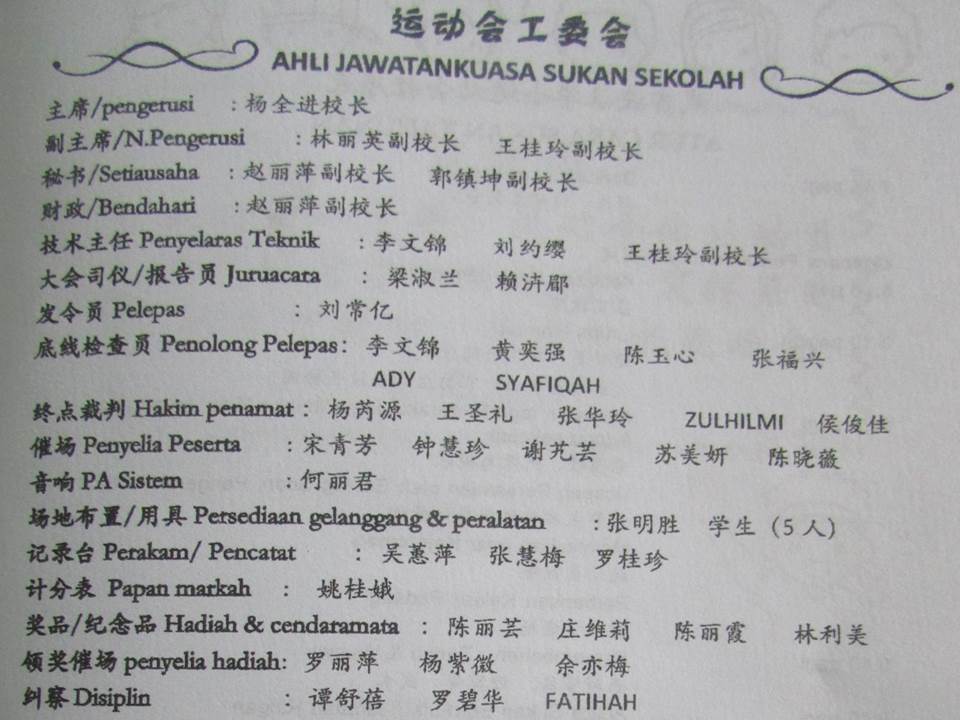 运动会工委会
AHLI JAWATANKUASA SUKAN SEKOLAH
主席/pengerusi : 杨全进校长
副主席/N.Pengerusi : 林丽英副校长 王桂玲副校长
秘书/Setiausaha : 赵丽萍副校长 郭镇坤副校长
财政/Bendahari : 赵丽萍副校长
技术主任 Penyelaras Teknik : 李文锦 刘约缨 王桂玲副校长
大会司仪/报告员 Juruacara : 梁淑兰 赖汫郿
发令员 Pelepas : 刘常亿
底线检查员 Penolong Pelepas: 李文锦 黄奕强 陈玉心 张福兴
ADY SYAFIQAH
终点裁判 Hakim penamat : 杨芮源 王圣礼 张华玲 ZULHILMI 侯俊佳
催场 Penyelia Peserta : 宋青芳 钟慧珍 谢艽芸 苏美妍 陈晓薇
音响 PA Sistem : 何丽君
场地布置/用具 Persediaan gelanggang & peralatan : 张明胜 学生（5 人）
记录台 Perakam/ Pencatat : 吴蕙萍 张慧梅 罗桂珍
计分表 Papan markah : 姚桂娥
奖品/纪念品 Hadiah & cendaramata : 陈丽芸 庄维莉 陈丽霞 林利美
领奖催场 penyelia hadiah: 罗丽萍 杨紫微 余亦梅
纠察 Disiplin : 谭舒蓓 罗碧华 FATIHAH